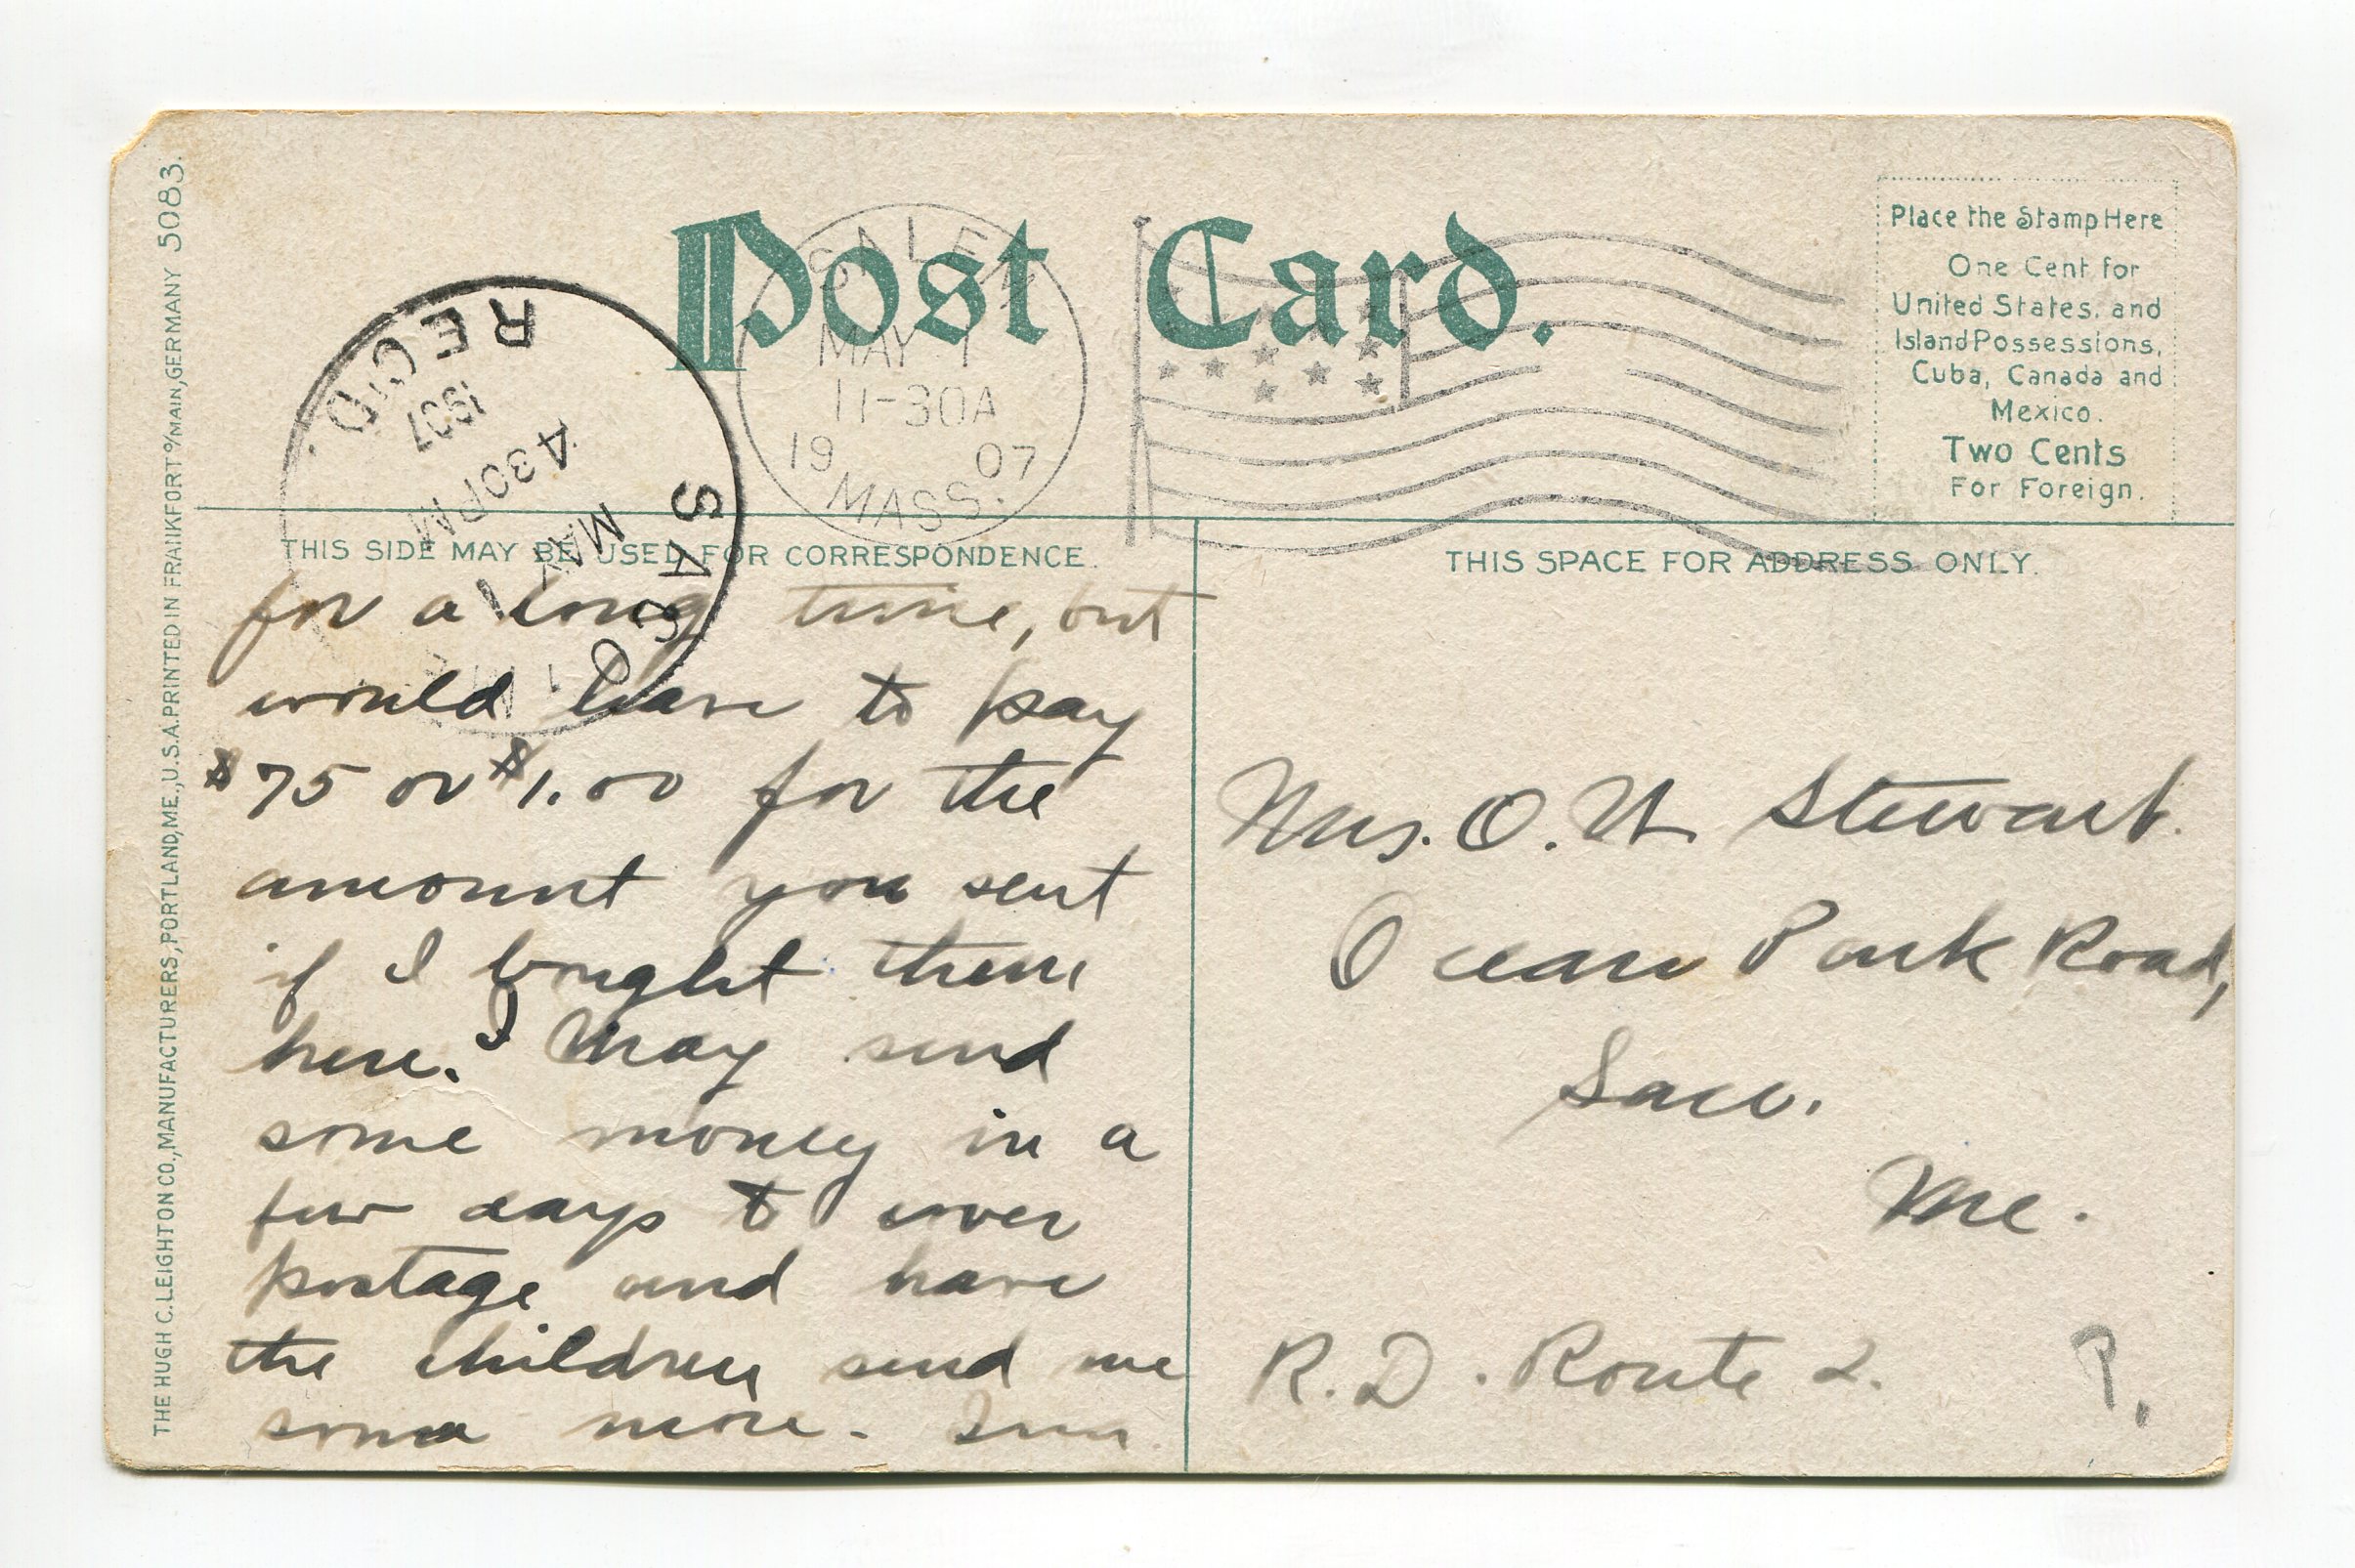 THE HUGH C. LEIGHTON CO., MANUFACTURERS, PORTLAND, ME., U.S.A. PRINTED IN FRANKFORT o/MAIN, GERMANY 5083.
Post Card.
SALEM
MAY 1
11-30A
19 07
MASS.
SACO
MAY 1
4 30PM
1907
REC'D.
Place the Stamp Here
One Cent for
United States, and
Island Possessions,
Cuba, Canada and
Mexico.
Two Cents
For Foreign.
THIS SIDE MAY BE USED FOR CORRESPONDENCE.
for a long time, but
would have to pay
$75 or $1.00 for the
amount you sent
if I bought them
here. I May send
some money in a
few days to cover
postage and have
the children send me
some more.
THIS SPACE FOR ADDRESS ONLY.
Mrs. O. W. Stewart.
Ocean Park Road,
Saco.
Me.
R. D. Route 2.
P.